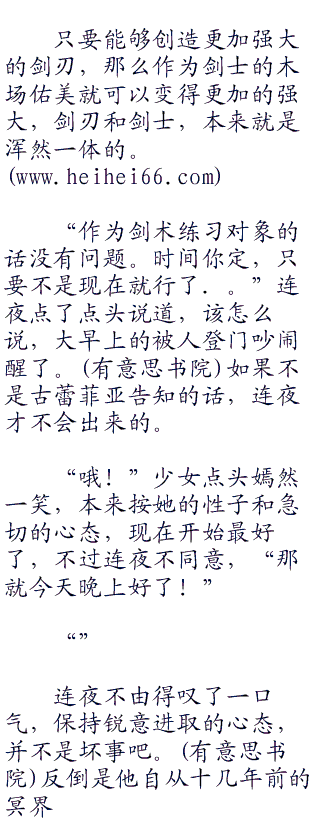 只要能够创造更加强大
的剑刃，那么作为剑士的木
场佑美就可以变得更加的强
大，剑刃和剑士，本来就是
浑然一体的。
(www.heihei66.com)
“作为剑术练习对象的
话没有问题。时间你定，只
要不是现在就行了．。”连
夜点了点头说道，该怎么
说，大早上的被人登门吵闹
醒了。(有意思书院)如果不
是古蕾菲亚告知的话，连夜
才不会出来的。
“哦！”少女点头嫣然
一笑，本来按她的性子和急
切的心态，现在开始最好
了，不过连夜不同意，“那
就今天晚上好了！”
“”
连夜不由得叹了一口
气，保持锐意进取的心态，
并不是坏事吧。(有意思书
院)反倒是他自从十几年前的
冥界